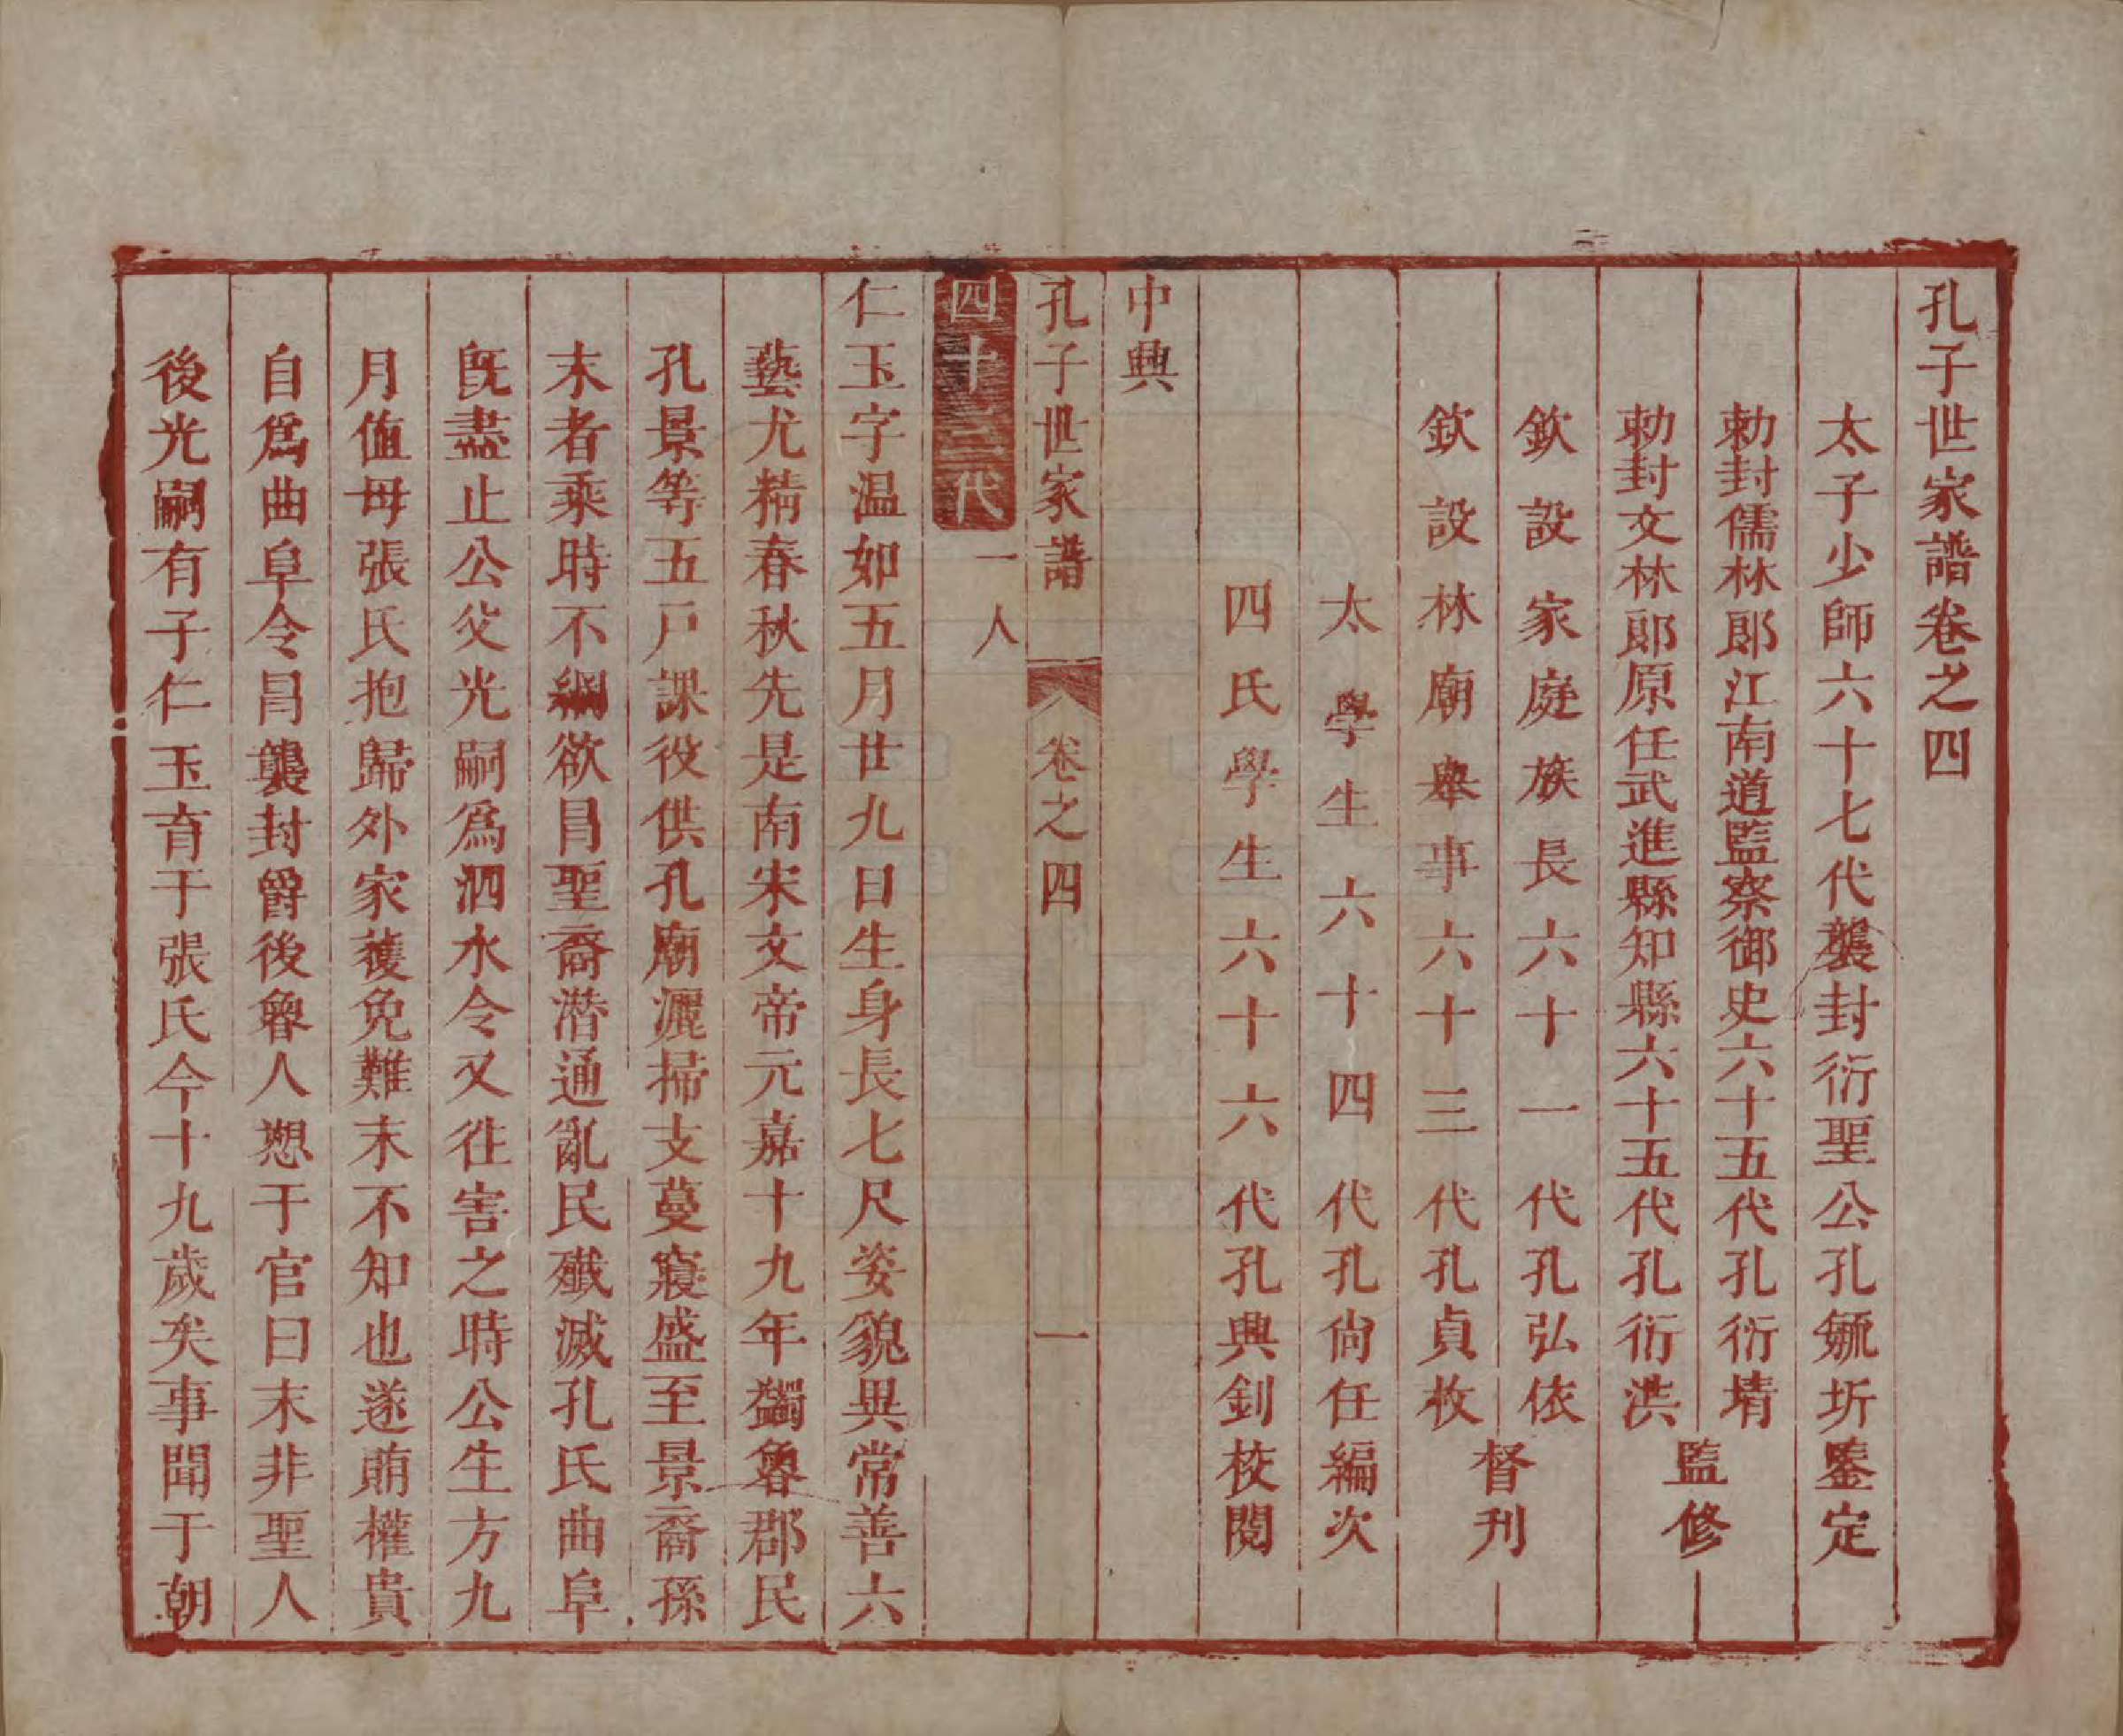 孔子世家譜卷之四
太子少師六十七代襲封衍聖公孔毓圻鑒定
勅封儒林郎江南道監察御史六十五代孔衍堉
勅封文林郎原任武進縣知縣六十五代孔衍洪
監修
欽設家庭族長六十一代孔弘依
欽設林廟舉事六十三代孔貞枚
督刊
太學生六十四代孔尚任編次
四氏學生六十六代孔興釗校閱
中興
孔子世家譜 卷之四 一
四十三代 一人
仁玉字温如五月廿九日生身長七尺姿貌異常善六
藝尤精春秋先是南宋文帝元嘉十九年蠲魯郡民
孔景等五戶課役供孔廟灑掃支蔓寖盛至景裔孫
末者乘時不綱欲冒聖裔潛通亂民殲滅孔氏曲阜
既盡止公父光嗣爲泗水令又往害之時公生方九
月値母張氏抱歸外家獲免難末不知也遂賄權貴
自爲曲阜令冒襲封爵後魯人愬于官曰末非聖人
後光嗣有子仁玉育于張氏今十九歲矣事聞于朝